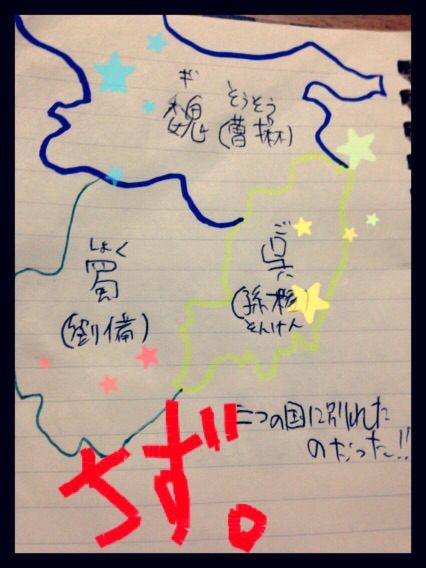 ぎ
魏
そうそう
(曹操)
しょく
蜀
(劉備)
ご
呉
(孫権)
そんけん
三つの国に別れた
のだった!!
ちず。